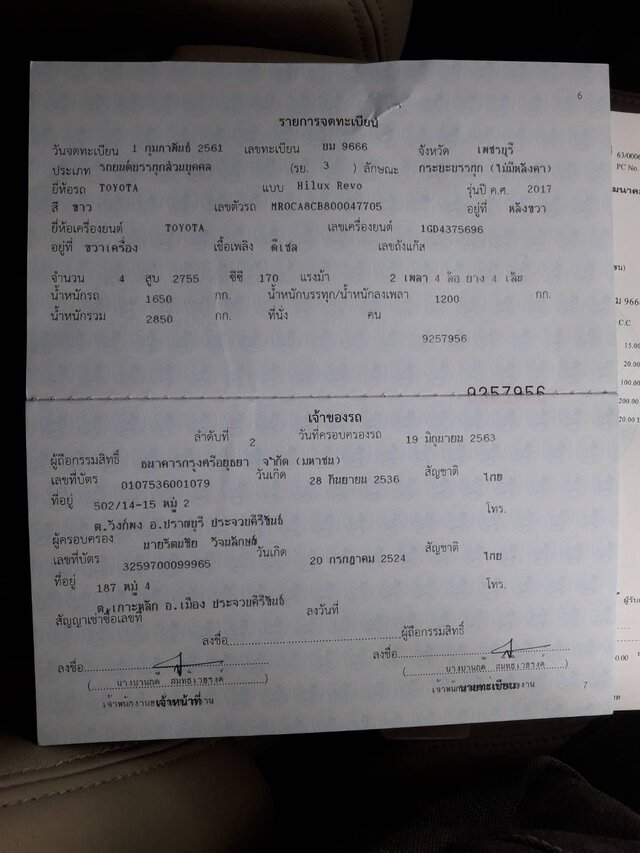 6
รายการจดทะเบียน
วันจดทะเบียน 1 กุมภาพันธ์ 2561 เลขทะเบียน ยม 9666 จังหวัด เพชรบุรี
ประเภท รถยนต์บรรทุกส่วนบุคคล (รย. 3 ) ลักษณะ กระบะบรรทุก (ไม่มีหลังคา)
ยี่ห้อรถ TOYOTA แบบ Hilux Revo รุ่นปี ค.ศ. 2017
สี ขาว เลขตัวรถ MR0CA8CB800047705 อยู่ที่ หลังขวา
ยี่ห้อเครื่องยนต์ TOYOTA เลขเครื่องยนต์ 1GD4375696
อยู่ที่ ขวาเครื่อง เชื้อเพลิง ดีเซล เลขถังแก๊ส
จำนวน 4 สูบ 2755 ซีซี 170 แรงม้า 2 เพลา 4 ล้อ ยาง 4 เส้น
น้ำหนักรถ 1650 กก. น้ำหนักบรรทุก/น้ำหนักลงเพลา 1200 กก.
น้ำหนักรวม 2850 กก. ที่นั่ง คน
9257956
9257956
เจ้าของรถ
ลำดับที่ 2 วันที่ครอบครองรถ 19 มิถุนายน 2563
ผู้ถือกรรมสิทธิ์ ธนาคารกรุงศรีอยุธยา จำกัด (มหาชน)
เลขที่บัตร 0107536001079 วันเกิด 28 กันยายน 2536 สัญชาติ ไทย
ที่อยู่ 502/14-15 หมู่ 2 โทร.
ต.วังก์พง อ.ปราณบุรี ประจวบคีรีขันธ์
ผู้ครอบครอง นายรัตนชัย วิจนลักษณ์
เลขที่บัตร 3259700099965 วันเกิด 20 กรกฎาคม 2524 สัญชาติ ไทย
ที่อยู่ 187 หมู่ 4 โทร.
ต.เกาะหลัก อ.เมือง ประจวบคีรีขันธ์
สัญญาเช่าซื้อเลขที่ ลงวันที่
ลงชื่อ ผู้ถือกรรมสิทธิ์
ลงชื่อ ลงชื่อ
เจ้าหน้าที่ นายทะเบียน
7
63/0006
PC No.
ม 966
C.C
15.00
20.00
100.00
200.00
20.00